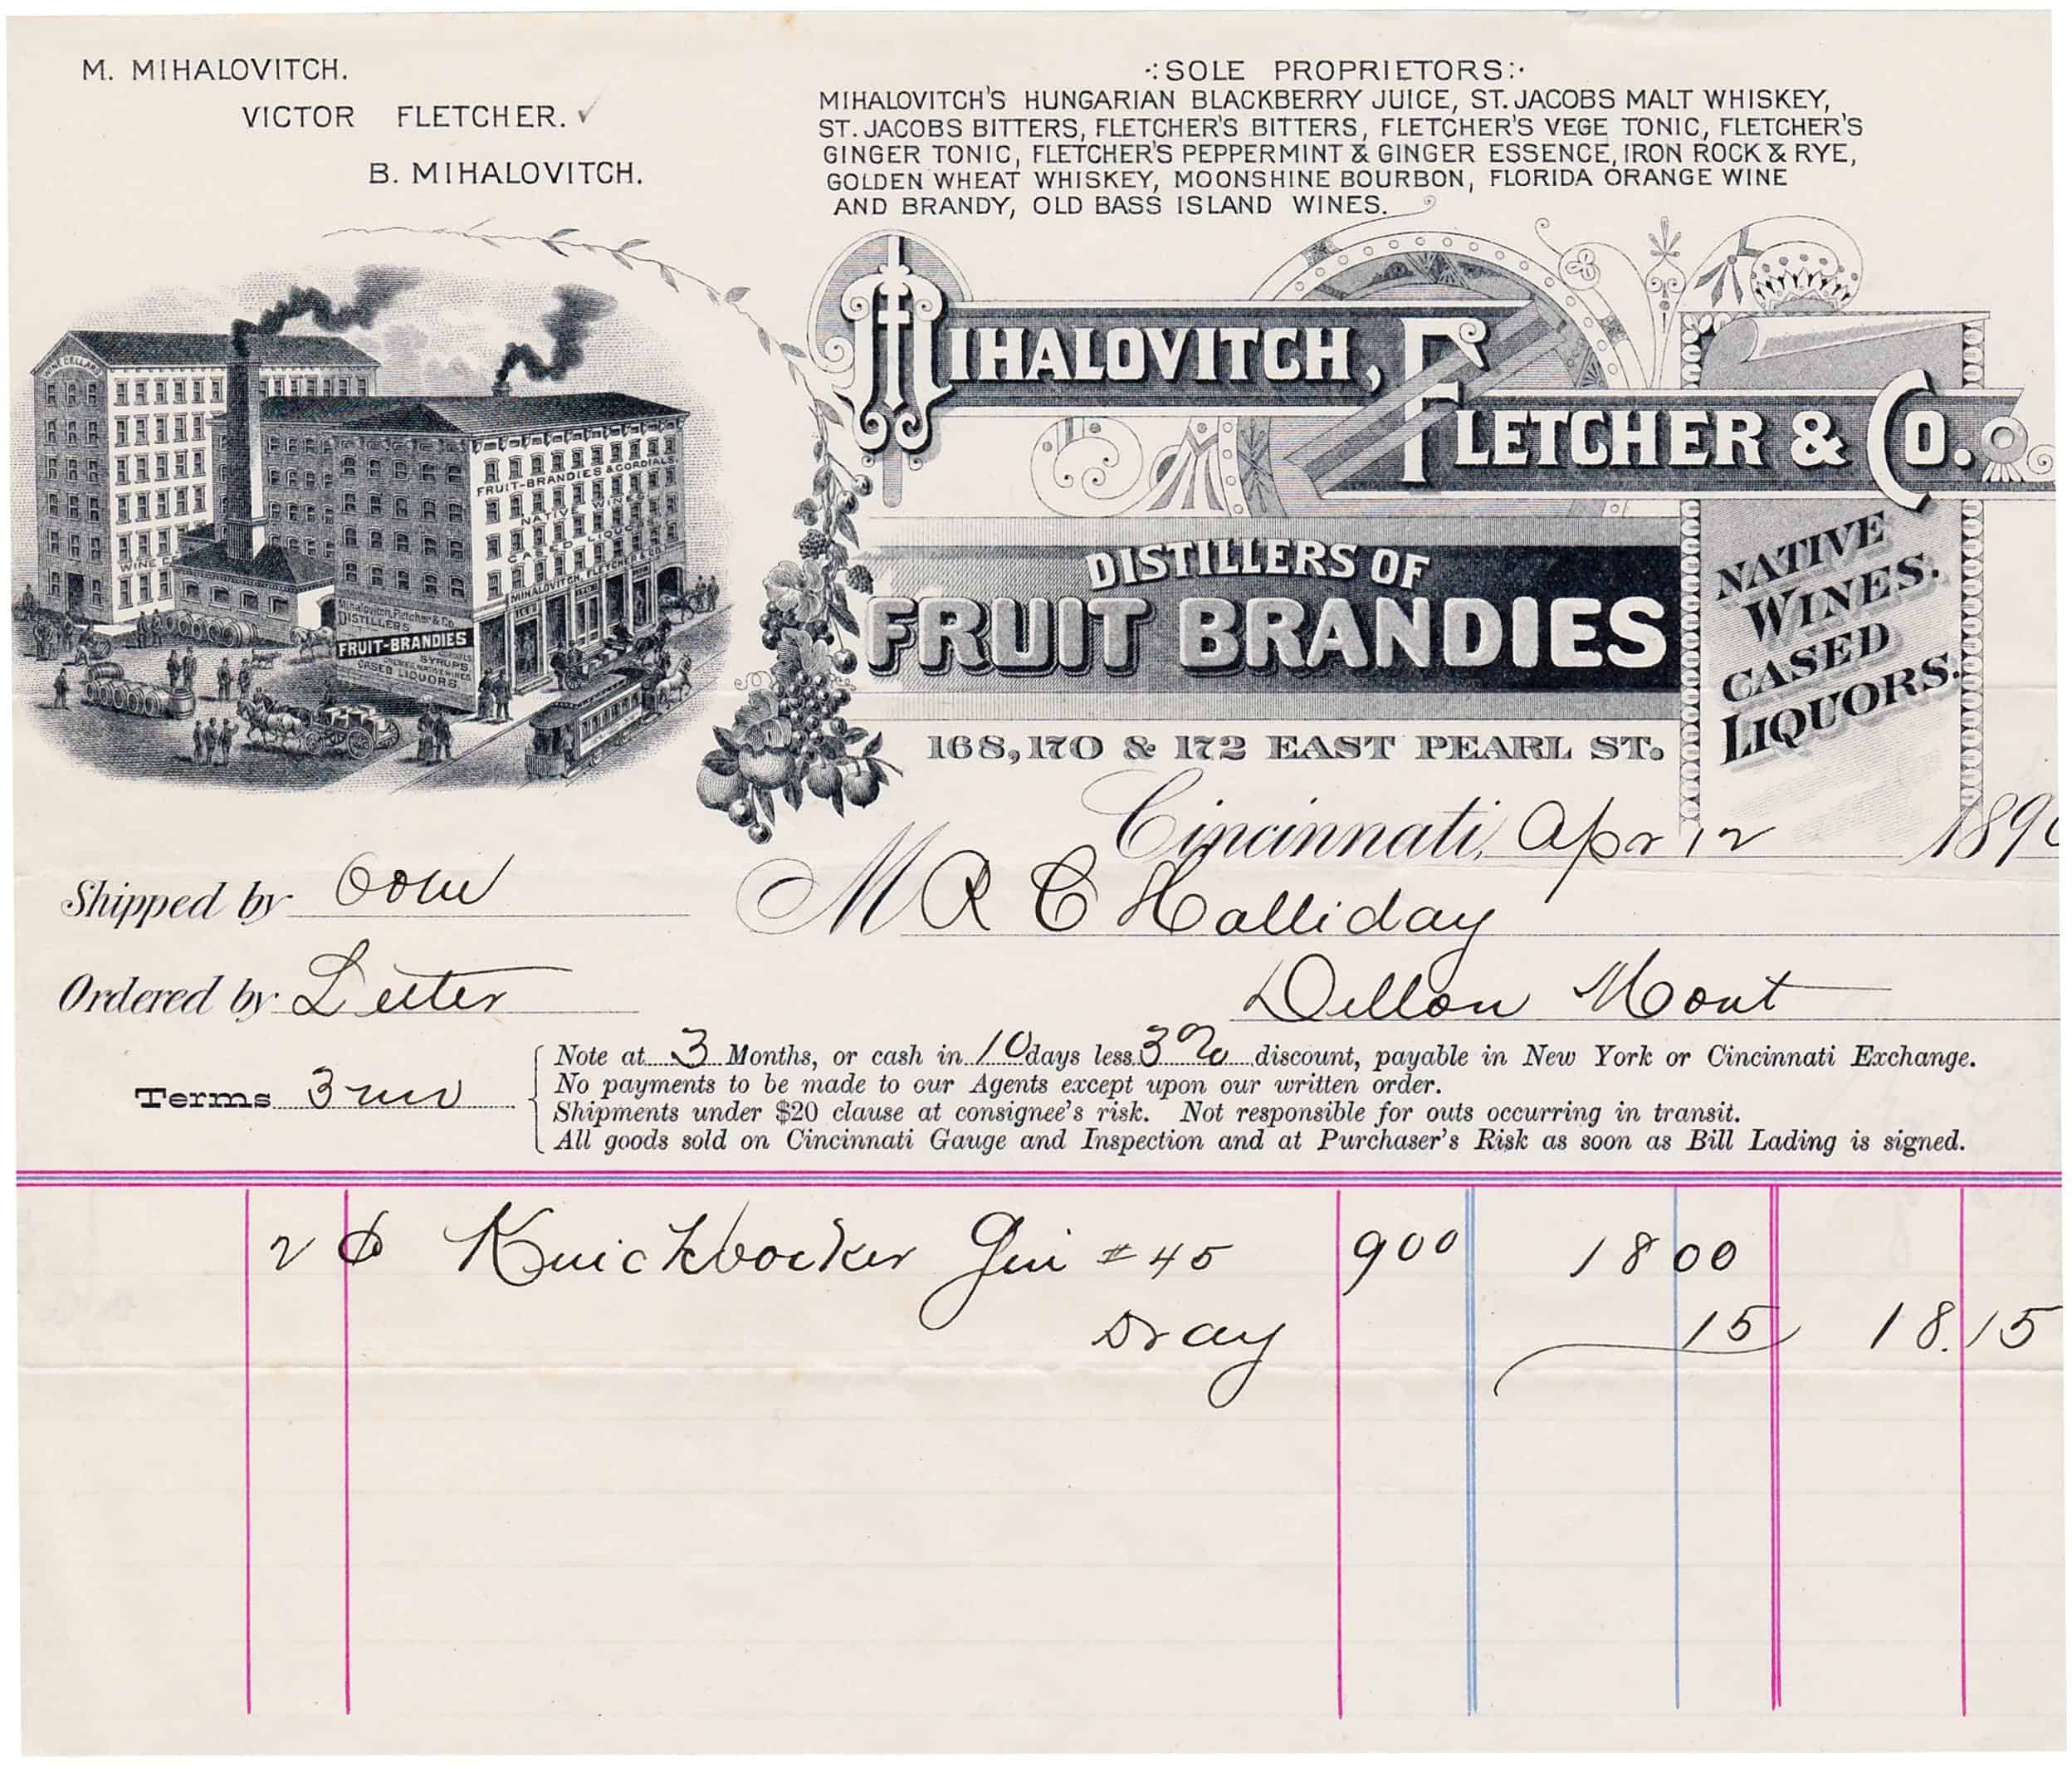 M. MIHALOVITCH.
VICTOR FLETCHER.
B. MIHALOVITCH.
SOLE PROPRIETORS:
MIHALOVITCH'S HUNGARIAN BLACKBERRY JUICE, ST. JACOBS MALT WHISKEY,
ST. JACOBS BITTERS, FLETCHER'S BITTERS, FLETCHER'S VEGE TONIC, FLETCHER'S
GINGER TONIC, FLETCHER'S PEPPERMINT & GINGER ESSENCE, IRON ROCK & RYE,
GOLDEN WHEAT WHISKEY, MOONSHINE BOURBON, FLORIDA ORANGE WINE
AND BRANDY, OLD BASS ISLAND WINES.
WINE CELLARS
FRUIT-BRANDIES & CORDIALS.
NATIVE WINES
CASED LIQUORS
MIHALOVITCH, FLETCHER & CO.
WINE
Mihalovitch, Fletcher & Co.
DISTILLERS
FRUIT-BRANDIES
SYRUPS
CASED LIQUORS
MIHALOVITCH,
FLETCHER & CO.
DISTILLERS OF
FRUIT BRANDIES
NATIVE
WINES.
CASED
LIQUORS.
168, 170 & 172 EAST PEARL ST.
Cincinnati, Apr 12 189
Shipped by
M R C Halliday
Ordered by Letter
Dillon Mont
Terms 3 mo
Note at 3 Months, or cash in 10 days less 3% discount, payable in New York or Cincinnati Exchange.
No payments to be made to our Agents except upon our written order.
Shipments under $20 clause at consignee's risk. Not responsible for outs occurring in transit.
All goods sold on Cincinnati Gauge and Inspection and at Purchaser's Risk as soon as Bill Lading is signed.
2 Knickbocker Gin #45 900 18 00
Dray 15 18.15